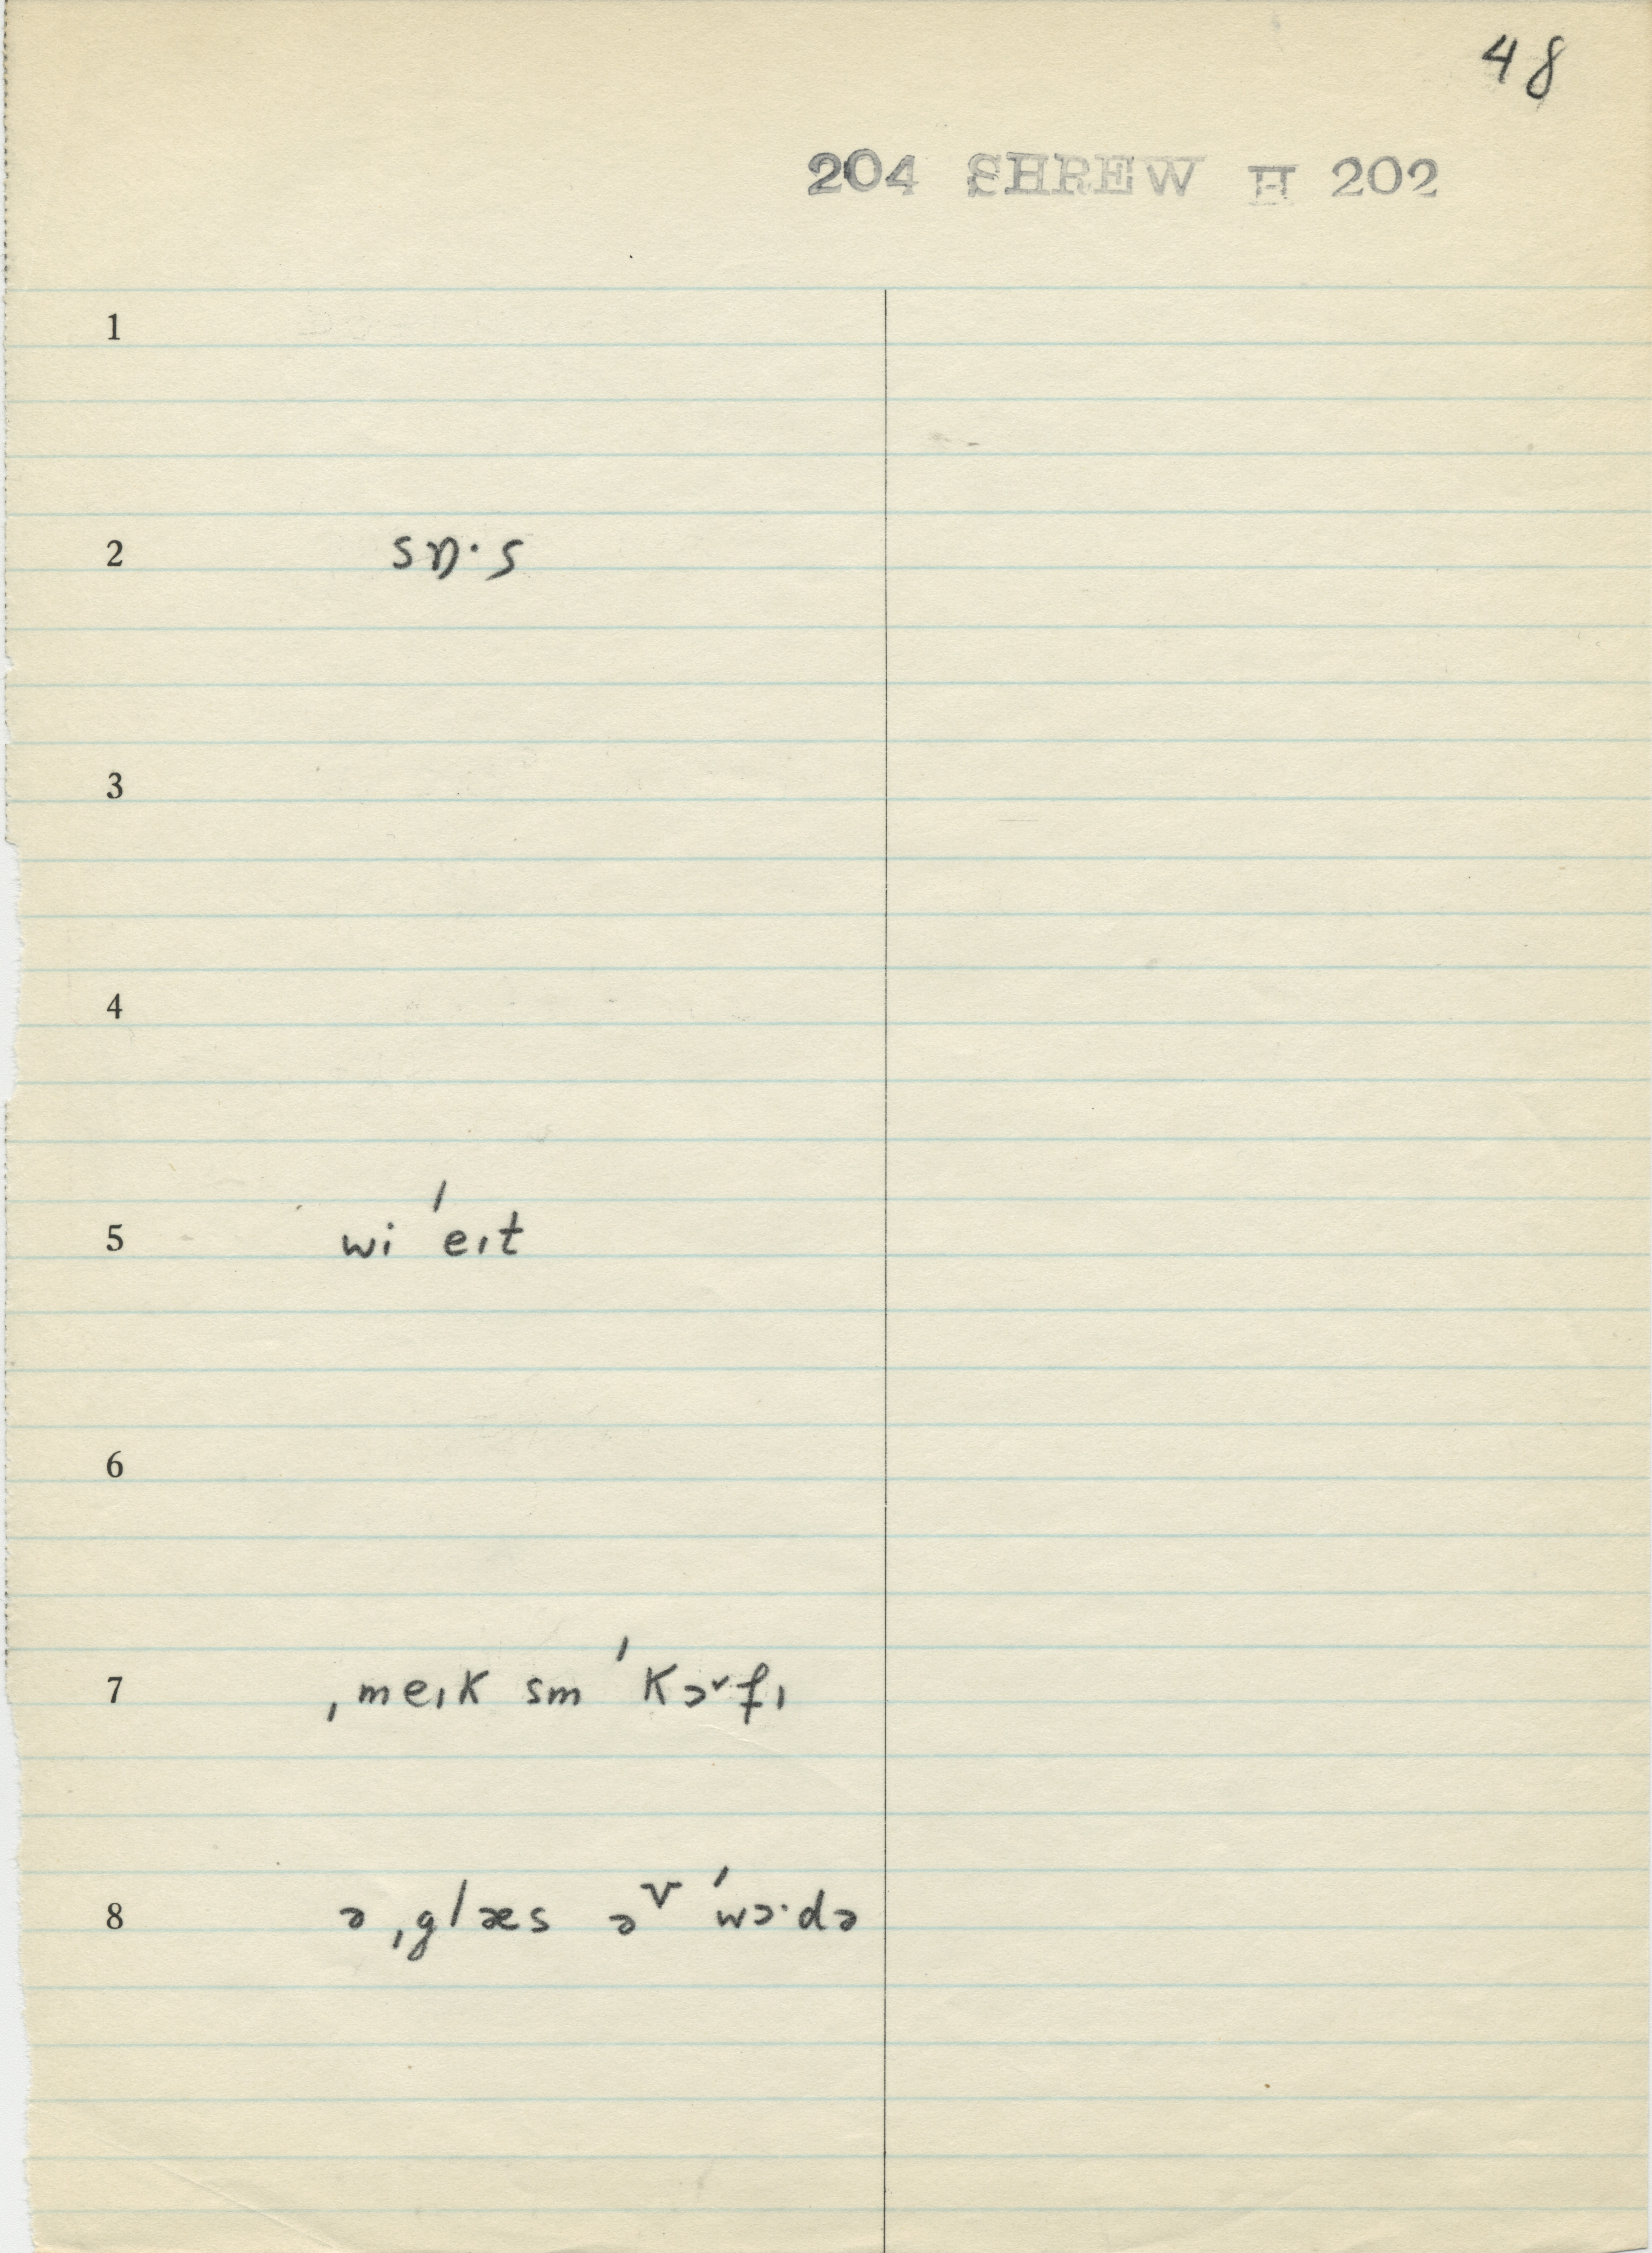 48
204 SHREW H 202
1
2 sɒ·s
3
4
5 wi ˈeɪt
6
7 ˌmeɪk sm ˈkɔ˅fɪ
8 ə ˌglæs əv ˈwɔ·də